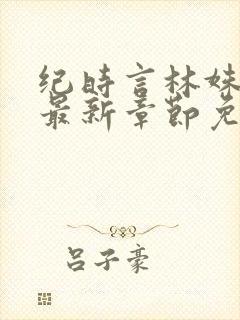 纪时言林姝
最新章节免
吕子豪